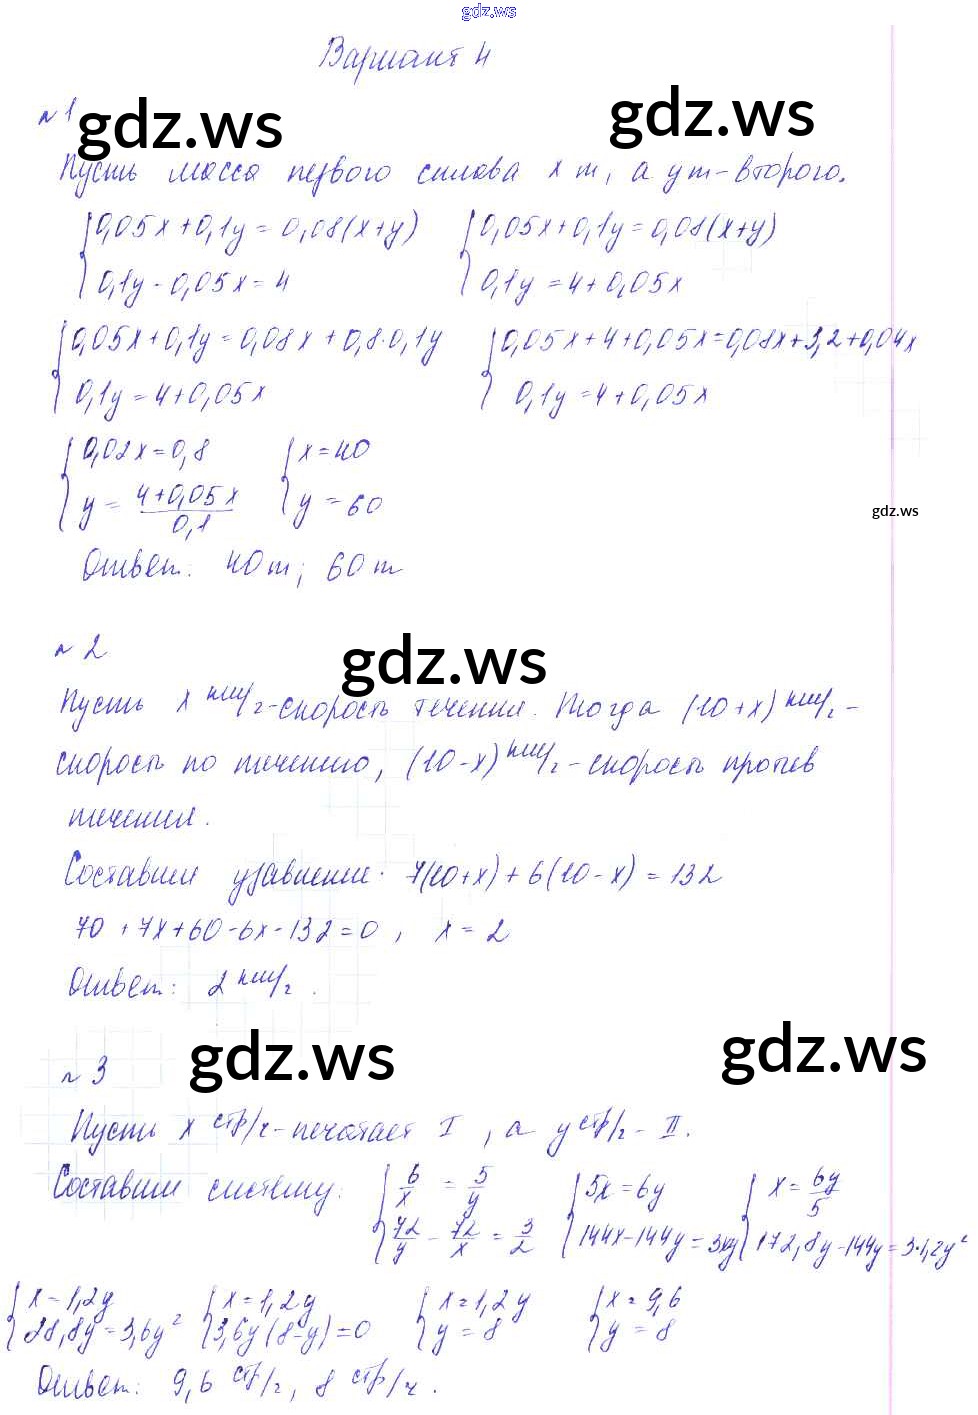 gdz.ws
Вариант 4
№1
gdz.ws gdz.ws
Пусть масса первого сплава х т, а у т - второго.
{0,05x + 0,1y = 0,08(x+y) {0,05x + 0,1y = 0,08(x+y)
{0,1y - 0,05x = 4 {0,1y = 4 + 0,05x
{0,05x + 0,1y = 0,08x + 0,8·0,1y {0,05x + 4 + 0,05x = 0,08x + 3,2 + 0,04x
{0,1y = 4 + 0,05x {0,1y = 4 + 0,05x
{0,02x = 0,8 {x = 40
{y = (4 + 0,05x)/0,1 {y = 60
gdz.ws
Ответ: 40 т; 60 т
№2
gdz.ws
Пусть х км/ч - скорость течения. Тогда (10 + x) км/ч -
скорость по течению, (10 - x) км/ч - скорость против
течения.
Составим уравнение: 7(10+x) + 6(10-x) = 132
70 + 7x + 60 - 6x - 132 = 0, x = 2
Ответ: 2 км/ч.
gdz.ws gdz.ws
№3
Пусть х стр/ч - печатает I, а у стр/ч - II.
Составим систему:
{6/x = 5/y {5x = 6y {x = 6y/5
{72/y - 72/x = 3/2 {144x - 144y = 3xy {172,8y - 144y = 3·1,2y²
{x = 1,2y {x = 1,2y {x = 1,2y {x = 9,6
{28,8y = 3,6y² {3,6y(8-y) = 0 {y = 8 {y = 8
Ответ: 9,6 стр/ч, 8 стр/ч.